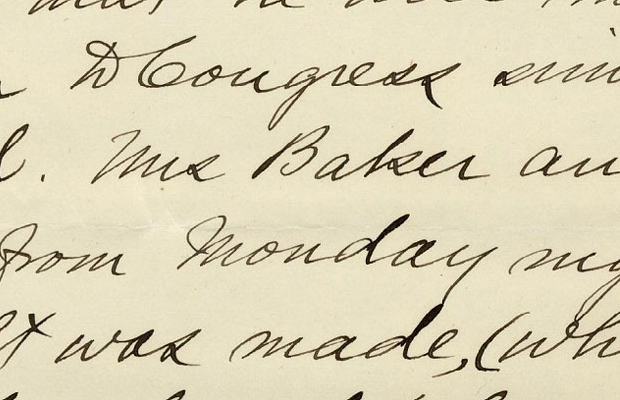 D Congress sin
l. Mrs Baker an
from Monday nig
It was made, (wh